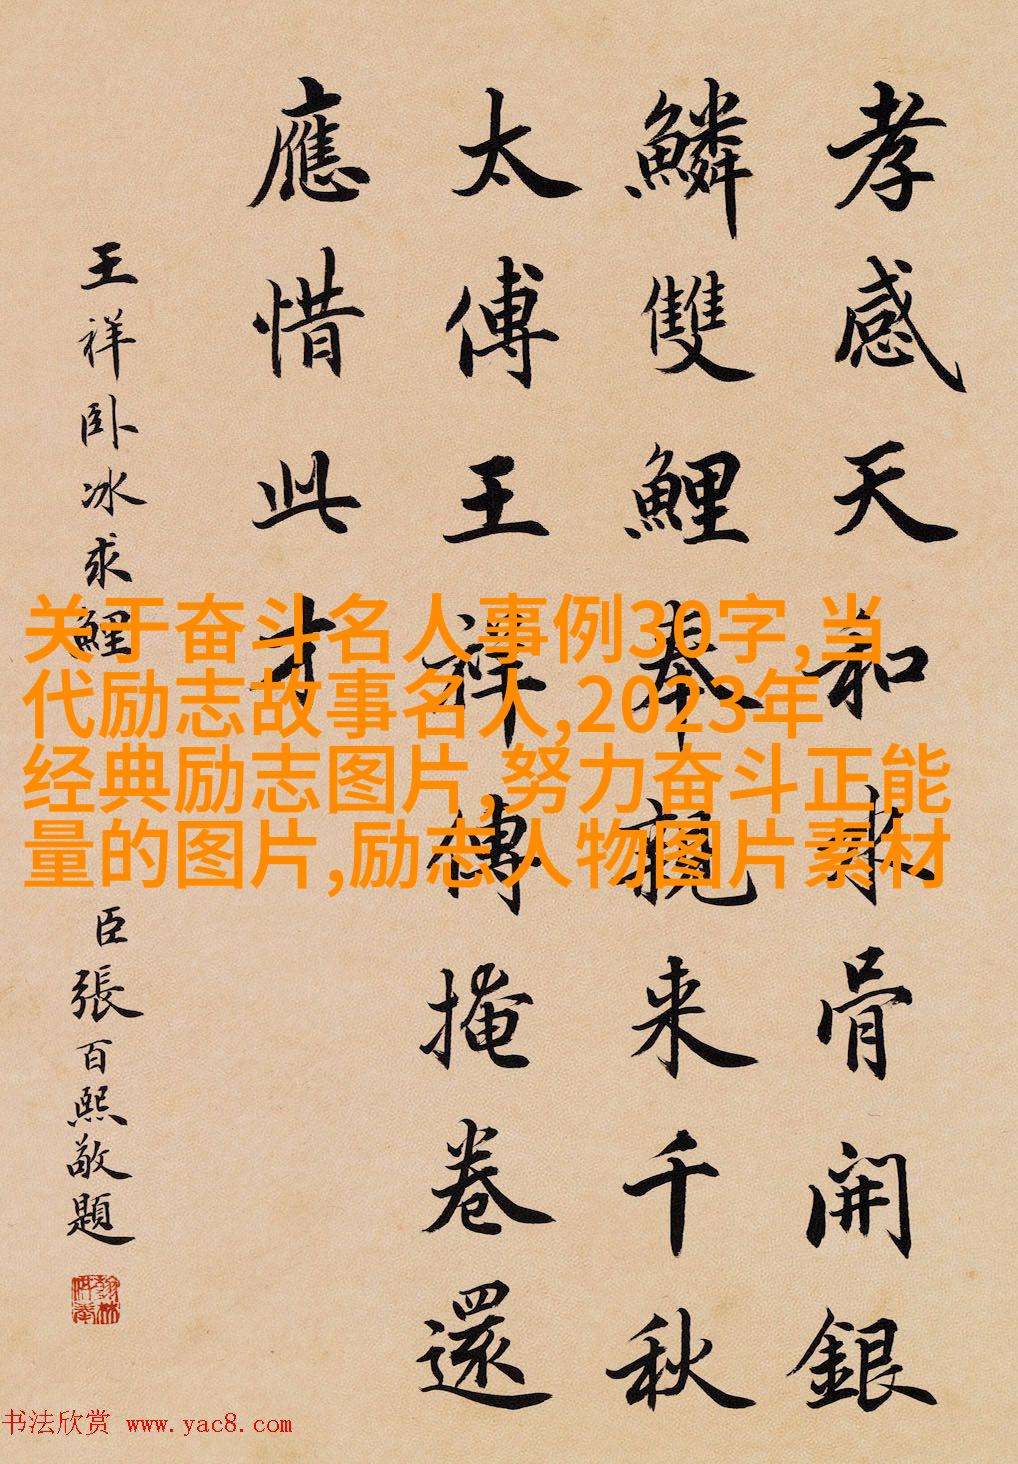 孝感天和氷骨開銀
鱗雙鯉奉親来千秋
太傅王祥傳掩卷還
應惜此才
王祥卧冰求鯉
臣張百熙敬題
关于奋斗名人事例30字,当
代励志故事名人,2023年
经典励志图片,努力奋斗正能
量的图片,励志人物图片素材
书法欣赏 www.yac8.com